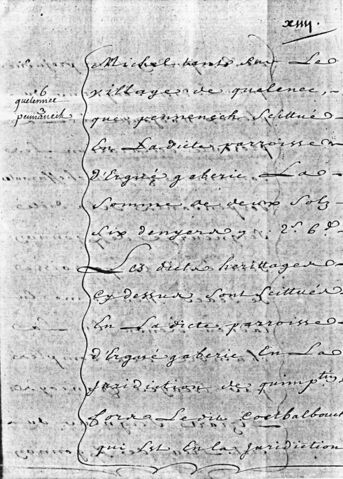 xiiij.
6
quelennec
penanech
Michel sur Le
village de quelenec,
que pennenech scittué
En La dicte parroisse
d'Ergué gaberic La
somme de deux solz
six denyers y. 2s 6d
Les dictz herittages
Cy dessus sont scittués
En La dicte parroisse
d'Ergué gaberic En La
Juridiction de quimp
fors Le dit Coetbalbouct
qui Est En la Juridiction